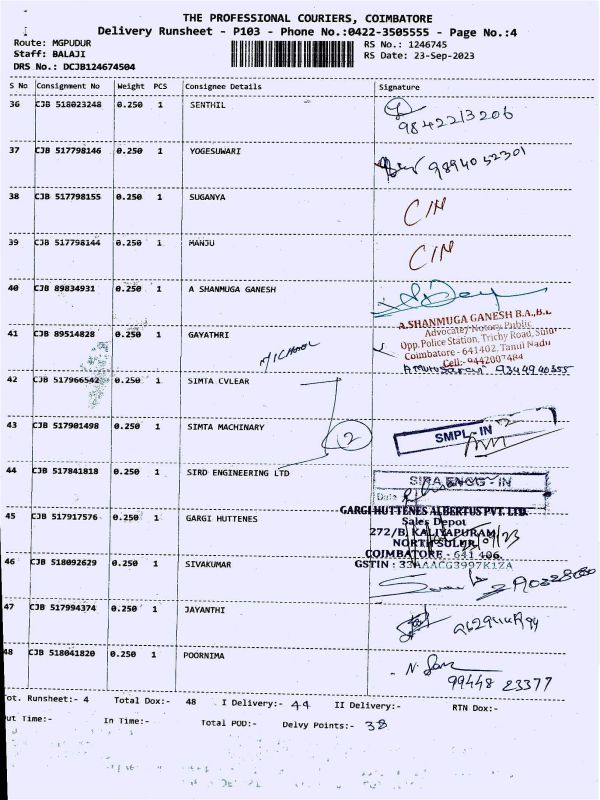 THE PROFESSIONAL COURIERS, COIMBATORE
Delivery Runsheet - P103 - Phone No.:0422-3505555 - Page No.:4
Route: MGPUDUR RS No.: 1246745
Staff: BALAJI RS Date: 23-Sep-2023
DRS No.: DCJB124674504
S No Consignment No Weight PCS Consignee Details Signature
36 CJB 518023248 0.250 1 SENTHIL
9842213206
37 CJB 517798146 0.250 1 YOGESUWARI 9894052301
38 CJB 517798155 0.250 1 SUGANYA C/N
39 CJB 517798144 0.250 1 MANJU C/N
40 CJB 89834931 0.250 1 A SHANMUGA GANESH
A.SHANMUGA GANESH B.A.,B.L
Advocate/ Notary Public
Opp.Police Station, Trichy Road, Sulur
Coimbatore - 641402. Tamil Nadu
Cell: 9442007484
41 CJB 89514828 0.250 1 GAYATHRI
9344940355
42 CJB 517966542 0.250 1 SIMTA CVLEAR
43 CJB 517901498 0.250 1 SIMTA MACHINARY SMPL-IN
2
44 CJB 517841818 0.250 1 SIRD ENGINEERING LTD
Date
GARGI HUTTENES ALBERTUS PVT. LTD.
Sales Depot
45 CJB 517917576 0.250 1 GARGI HUTTENES
272/B, KALIYAPURAM,
NORTH SULUR,
COIMBATORE - 641 406.
GSTIN : 33AAACG3997K1ZA
46 CJB 518092629 0.250 1 SIVAKUMAR
47 CJB 517994374 0.250 1 JAYANTHI
48 CJB 518041820 0.250 1 POORNIMA
99448 23377
Tot. Runsheet:- 4 Total Dox:- 48 I Delivery:- 44 II Delivery:- RTN Dox:-
Out Time:- In Time:- Total POD:- Delvy Points:- 38